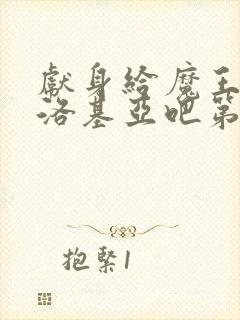 獻身給魔王
洛基亞吧第
抱緊1